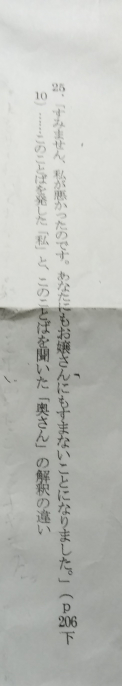 25.「すみません。私が悪かったのです。あなたにもお嬢さんにもすまないことになりました。」(p206下
10)……このことばを発した「私」と、このことばを聞いた「奥さん」の解釈の違い